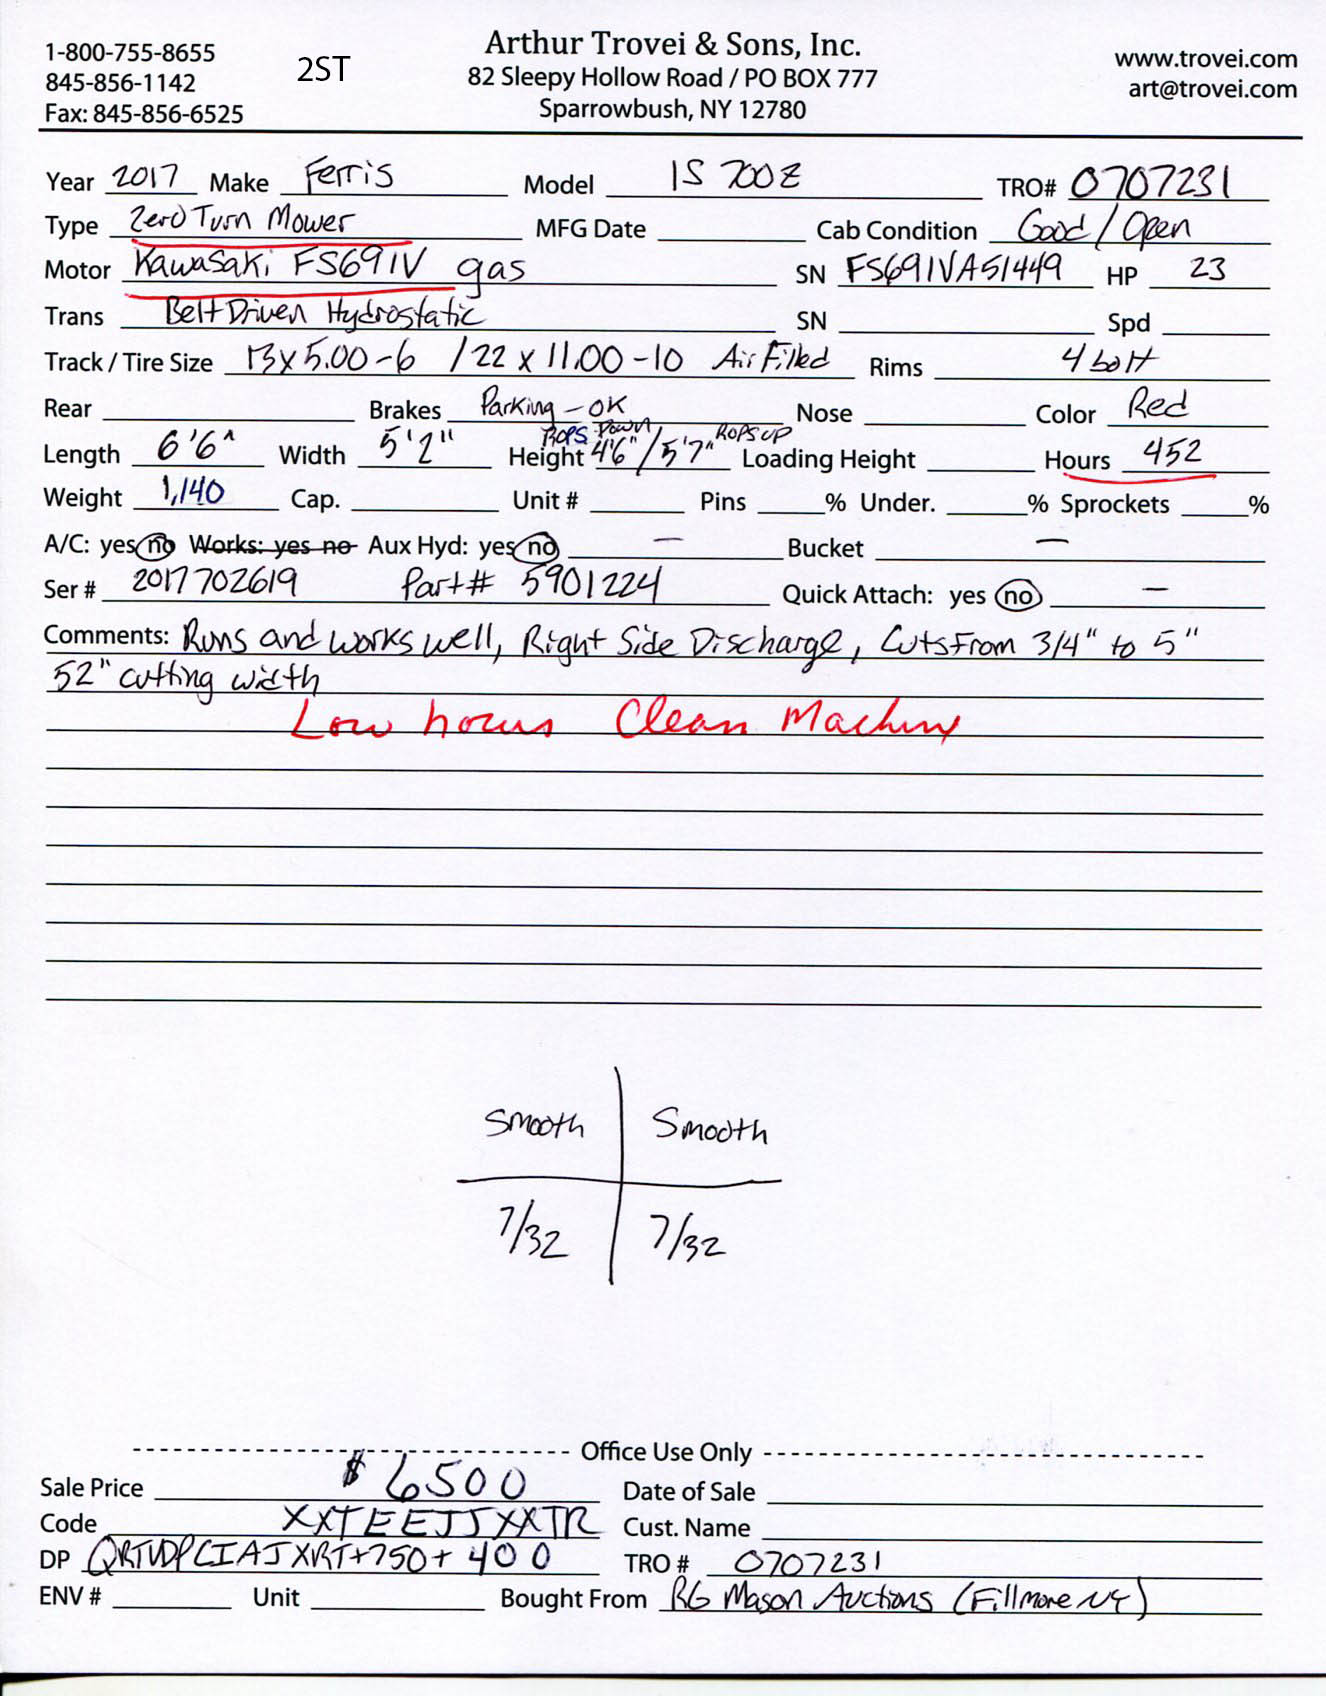 1-800-755-8655
845-856-1142
Fax: 845-856-6525
2ST
Arthur Trovei & Sons, Inc.
82 Sleepy Hollow Road / PO BOX 777
Sparrowbush, NY 12780
www.trovei.com
art@trovei.com
Year 2017 Make Ferris Model IS 700Z TRO# 0707231
Type Zero Turn Mower MFG Date Cab Condition Good / Open
Motor Kawasaki FS691V gas SN FS691VA51449 HP 23
Trans Belt Driven Hydrostatic SN Spd
Track / Tire Size 13x5.00-6 / 22 x 11.00-10 Air Filled Rims 4 bolt
Rear Brakes Parking - OK Nose Color Red
Length 6'6" Width 5'2" Height ROPS Down 4'6" / 5'7" ROPS UP Loading Height Hours 452
Weight 1,140 Cap. Unit # Pins % Under. % Sprockets %
A/C: yes no Works: yes no Aux Hyd: yes no — Bucket —
Ser # 2017702619 Part# 5901224 Quick Attach: yes no —
Comments: Runs and works well, Right Side Discharge, Cuts From 3/4" to 5"
52" cutting width
Low hours Clean Machine
Smooth Smooth
7/32 7/32
Office Use Only
Sale Price $6500 Date of Sale
Code XXTEEJJXXTR Cust. Name
DP QRTVDPCIAJXRT+750+400 TRO # 0707231
ENV # Unit Bought From RG Mason Auctions (Fillmore NY)